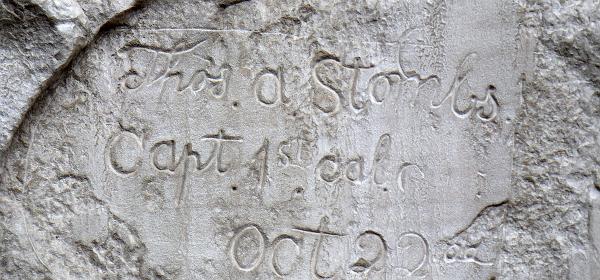 Thos. a Stombs
Capt 1st cal.
Oct 22